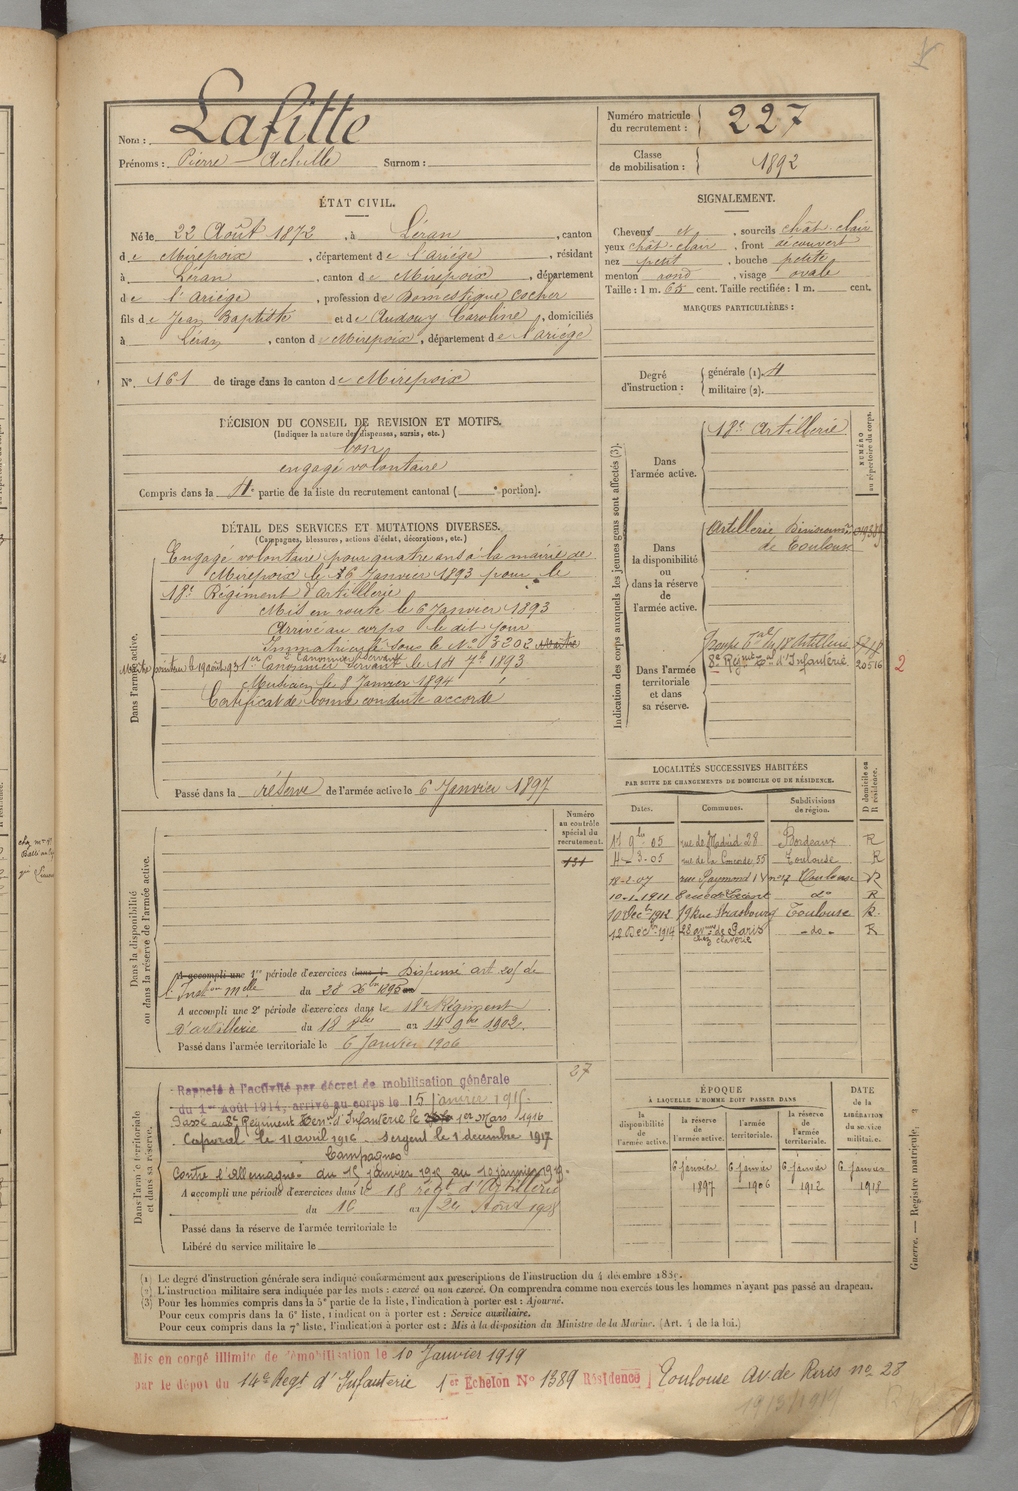 Nom : Lafitte
Prénoms : Pierre Achille Surnom :
Numéro matricule du recrutement : 227
Classe de mobilisation : 1892
ÉTAT CIVIL.
Né le 22 Août 1872, à Léran, canton
de Mirepoix, département de l'ariége, résidant
à Léran, canton de Mirepoix, département
de l'ariége, profession de Domestique cocher
fils de Jean Baptiste et de Audouy Caroline, domiciliés
à Léran, canton de Mirepoix, département de l'ariége
N°. 161 de tirage dans le canton de Mirepoix
SIGNALEMENT.
Cheveux et, sourcils chât. clair
yeux chât. clair, front découvert
nez petit, bouche petite
menton rond, visage ovale
Taille : 1 m. 65 cent. Taille rectifiée : 1 m. cent.
MARQUES PARTICULIÈRES :
Degré d'instruction : générale (1). 4
militaire (2).
DÉCISION DU CONSEIL DE REVISION ET MOTIFS.
(Indiquer la nature des dispenses, sursis, etc.)
bon
engagé volontaire
Compris dans la 4e partie de la liste du recrutement cantonal ( e portion).
DÉTAIL DES SERVICES ET MUTATIONS DIVERSES.
(Campagnes, blessures, actions d'éclat, décorations, etc.)
Dans l'armée active.
Engagé volontaire pour quatre ans à la mairie de
Mirepoix le 6 Janvier 1893 pour le
18e Régiment d'artillerie
Mis en route le 6 Janvier 1893
Arrivé au corps le dit jour
Immatriculé sous le No 3202
Maître pointeur le 19 août 93 1er Canonnier servant le 14 7b 1893
Canonnier servant
le 8 Janvier 1894
Certificat de bonne conduite accordé
Passé dans la réserve de l'armée active le 6 Janvier 1897
Indication des corps auxquels les jeunes gens sont affectés (3).
NUMÉRO au répertoire du corps.
Dans l'armée active.
18e Artillerie
Dans la disponibilité ou dans la réserve de l'armée active.
Artillerie Divisionre
de Toulouse
Dans l'armée territoriale et dans sa réserve.
18e Artillerie
8e Régiment Tal d'Infanterie 20516 2
LOCALITÉS SUCCESSIVES HABITÉES
PAR SUITE DE CHANGEMENTS DE DOMICILE OU DE RÉSIDENCE.
Dates. Communes. Subdivisions de région. D domicile ou R résidence.
rue de Madrid 28 Bordeaux R
4-3-05 rue de la Concorde 55 Toulouse R
18-2-07 rue Raymond IV no 17 Toulouse R
10-1-1911 do R
10 Decbre 1912 19 rue Strasbourg Toulouse R.
12 Decbre 1914 28 avnue de Paris -do- R
Numéro au contrôle spécial du recrutement.
131
Dans la disponibilité ou dans la réserve de l'armée active.
A accompli une 1re période d'exercices dans l Dispensé art de
l'Inston melle du 28 Xbre 1895
A accompli une 2e période d'exercices dans le 18e Régiment
d'artillerie du 18 8bre au 14 9bre 1902.
Passé dans l'armée territoriale le 6 Janvier 1906
27
Dans l'armée territoriale et dans sa réserve.
Rappelé à l'activité par décret de mobilisation générale
du 1er Août 1914, arrivé au corps le 15 Janvier 1915.
Passé au 8e Régiment d'Infanterie le 1er Mars 1916
Caporal le 11 avril 1916. Sergent le 1 décembre 1917
Campagnes
Contre l'Allemagne. du 15 janvier 1915 au 10 janvier 1919.
A accompli une période d'exercices dans le 18 régt d'Artillerie
du 16 au 24 Août 1908
Passé dans la réserve de l'armée territoriale le
Libéré du service militaire le
ÉPOQUE
À LAQUELLE L'HOMME DOIT PASSER DANS
la disponibilité de l'armée active. la réserve de l'armée active. l'armée territoriale. la réserve de l'armée territoriale.
DATE de la LIBÉRATION du service militaire.
6 janvier 6 janvier 6 janvier 6 janvier
1897 1906 1912 1918
Guerre. — Registre matricule.
(1) Le degré d'instruction générale sera indiqué conformément aux prescriptions de l'instruction du 4 décembre 1889.
(2) L'instruction militaire sera indiquée par les mots : exercé ou non exercé. On comprendra comme non exercés tous les hommes n'ayant pas passé au drapeau.
(3) Pour les hommes compris dans la 5e partie de la liste, l'indication à porter est : Ajourné.
Pour ceux compris dans la 6e liste, l'indication à porter est : Service auxiliaire.
Pour ceux compris dans la 7e liste, l'indication à porter est : Mis à la disposition du Ministre de la Marine. (Art. 4 de la loi.)
Mis en congé illimité de démobilisation le 10 Janvier 1919
par le dépôt du 14e Regt d'Infanterie 1er Echelon No 1389 Résidence Toulouse Av. de Paris no 28